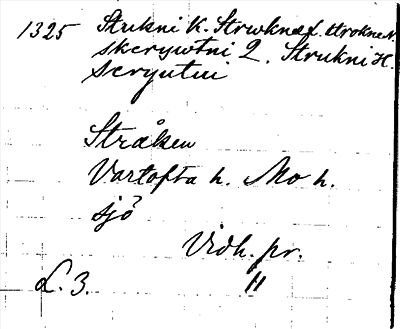 1325 Strukni K. Strwknæ L. strokne N.
skerywtni Q. Strukni H.
scryutni
Stråken
Vartofta h. Mo h.
sjö
Vidh. pr.
L. 3. H